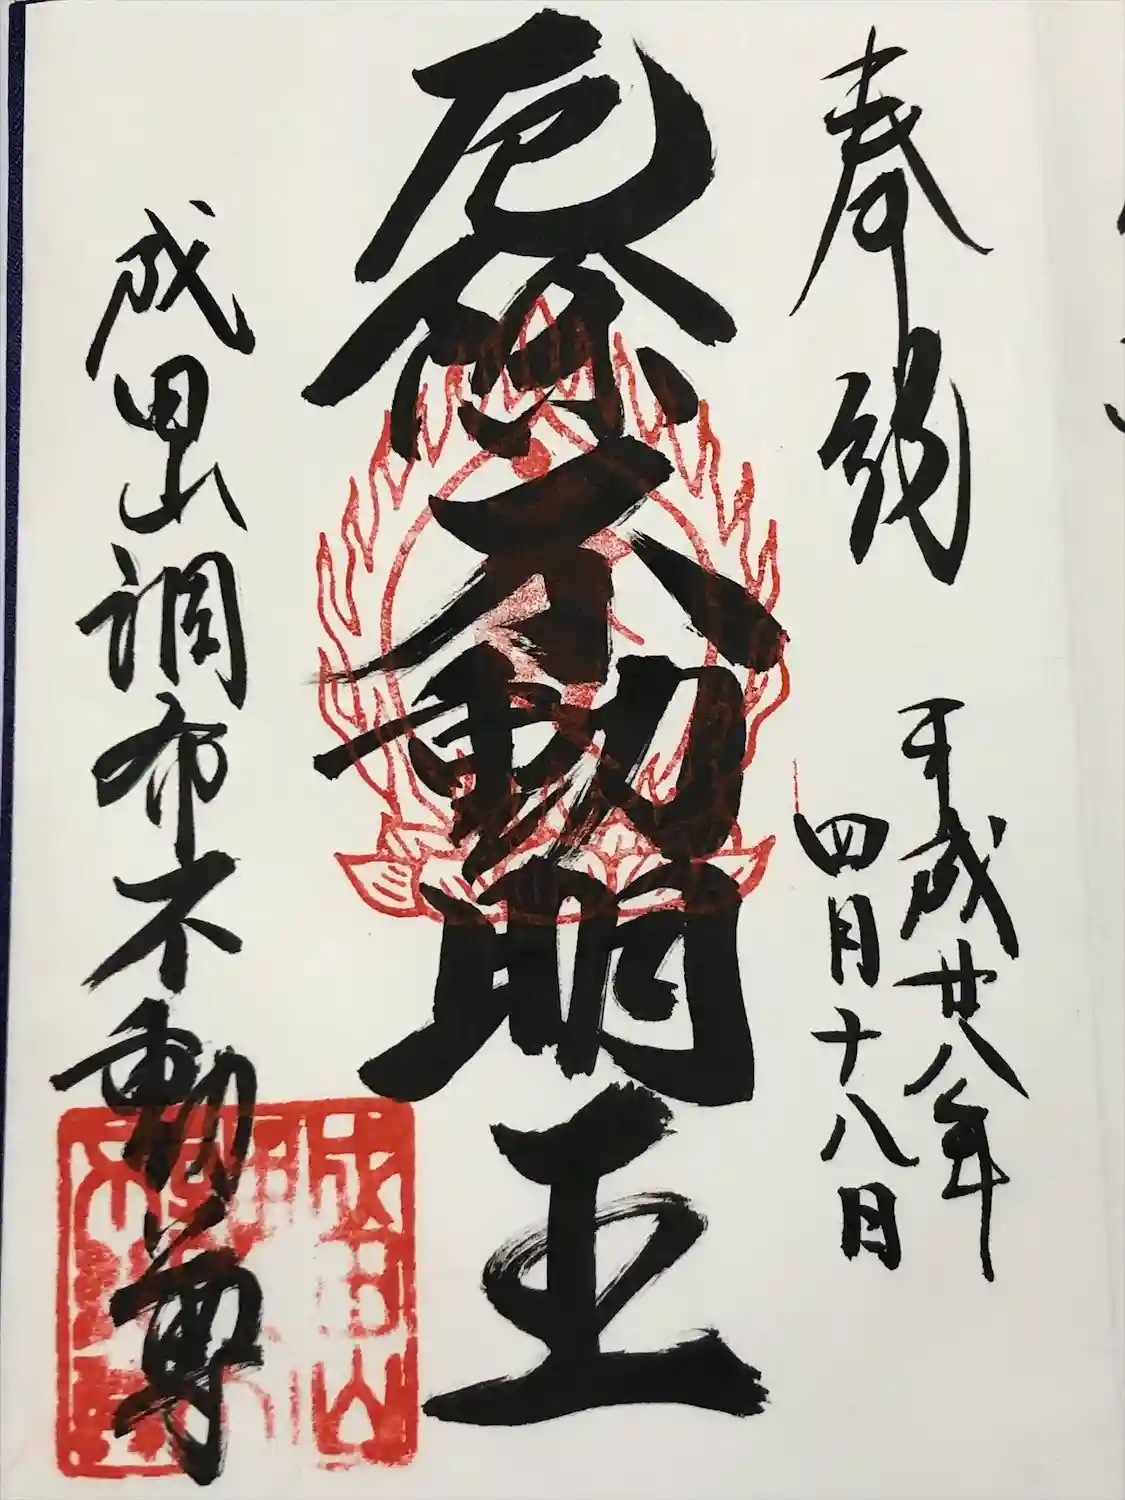 奉納
平成廿八年
四月十八日
厄除不動明王
成田山調布不動尊
成田山